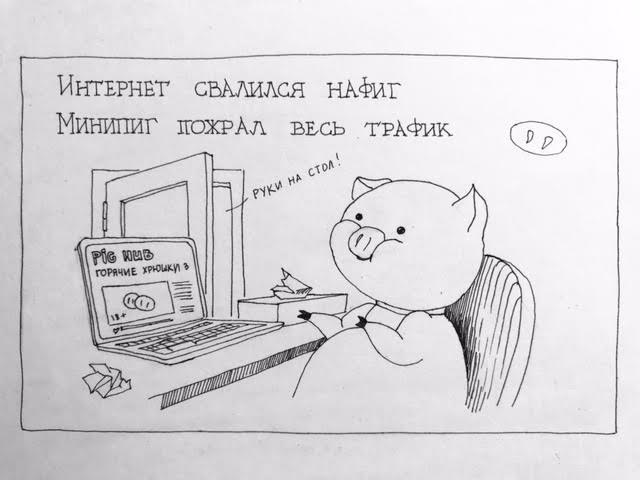 Интернет свалился нафиг
Минипиг пожрал весь трафик
Руки на стол!
PIG HUB
ГОРЯЧИЕ ХРЮШКИ 3
18+